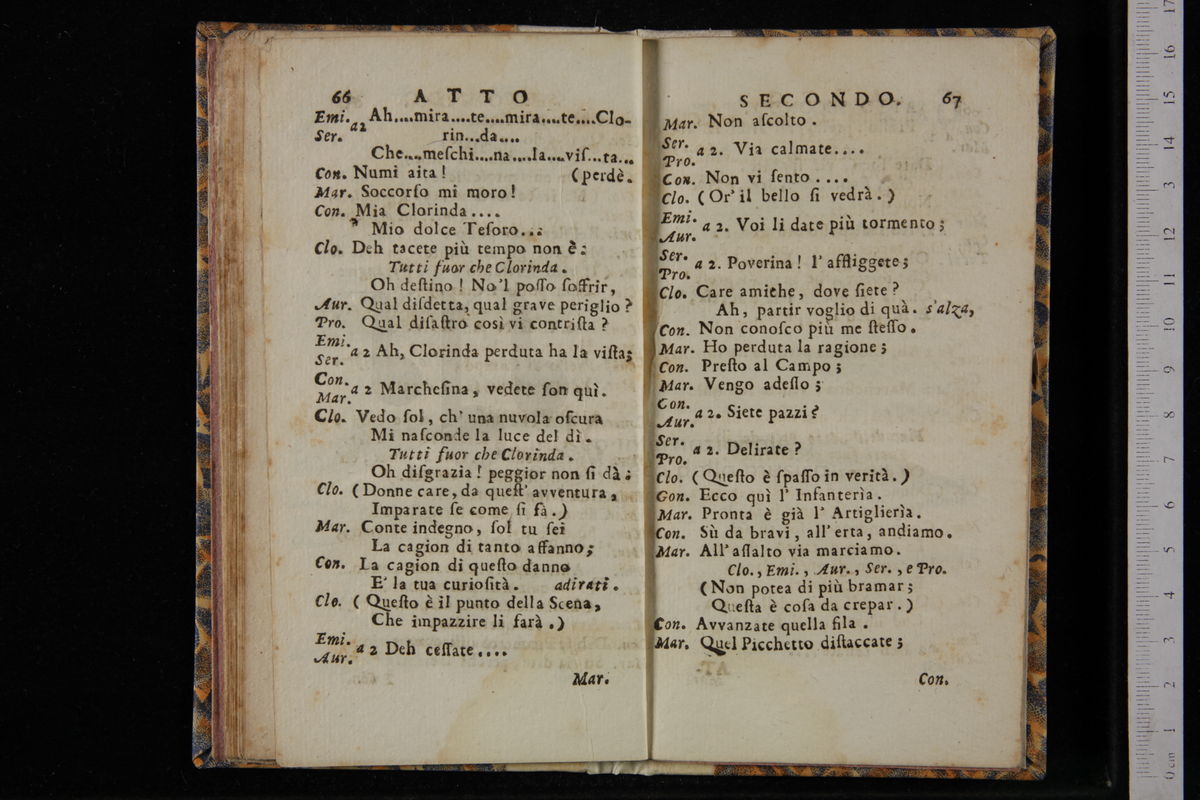 66 ATTO
Emi. Ah....mira....te....mira....te....Clo-
Ser. a2 rin...da....
Che....meſchi....na....la....viſ...ta...
Con. Numi aita! (perdè.
Mar. Soccorſo mi moro!
Con. Mia Clorinda....
Mio dolce Teſoro...
Clo. Deh tacete più tempo non è:
Tutti fuor che Clorinda.
Oh deſtino! No'l poſſo ſoffrir,
Aur. Qual diſdetta, qual grave periglio?
Pro. Qual diſaſtro così vi contriſta?
Emi.
Ser. a 2 Ah, Clorinda perduta ha la viſta;
Con.
Mar. a 2 Marcheſina, vedete ſon quì.
Clo. Vedo ſol, ch' una nuvola oſcura
Mi naſconde la luce del dì.
Tutti fuor che Clorinda.
Oh diſgrazia! peggior non ſi dà:
Clo. (Donne care, da queſt' avventura,
Imparate ſe come ſi fà.)
Mar. Conte indegno, ſol tu ſei
La cagion di tanto affanno;
Con. La cagion di queſto danno
E' la tua curioſità. adirati.
Clo. (Queſto è il punto della Scena,
Che impazzire li farà.)
Emi.
Aur. a 2 Deh ceſſate....
Mar.
SECONDO. 67
Mar. Non aſcolto.
Ser.
Pro. a 2. Via calmate....
Con. Non vi ſento....
Clo. (Or' il bello ſi vedrà.)
Emi.
Aur. a 2. Voi li date più tormento;
Ser.
Pro. a 2. Poverina! l' affliggete;
Clo. Care amiche, dove ſiete?
Ah, partir voglio di quà. s'alza,
Con. Non conoſco più me ſteſſo.
Mar. Ho perduta la ragione;
Con. Preſto al Campo;
Mar. Vengo adeſſo;
Con.
Aur. a 2. Siete pazzi?
Ser.
Pro. a 2. Delirate?
Clo. (Queſto è ſpaſſo in verità.)
Gon. Ecco quì l' Infanterìa.
Mar. Pronta è già l' Artiglierìa.
Con. Sù da bravi, all' erta, andiamo.
Mar. All' aſſalto via marciamo.
Clo., Emi., Aur., Ser., e Pro.
(Non potea di più bramar;
Queſta è coſa da crepar.)
Con. Avvanzate quella fila.
Mar. Quel Picchetto diſtaccate;
Con.
0 cm 1 2 3 4 5 6 7 8 9 10 11 12 13 14 15 16 17